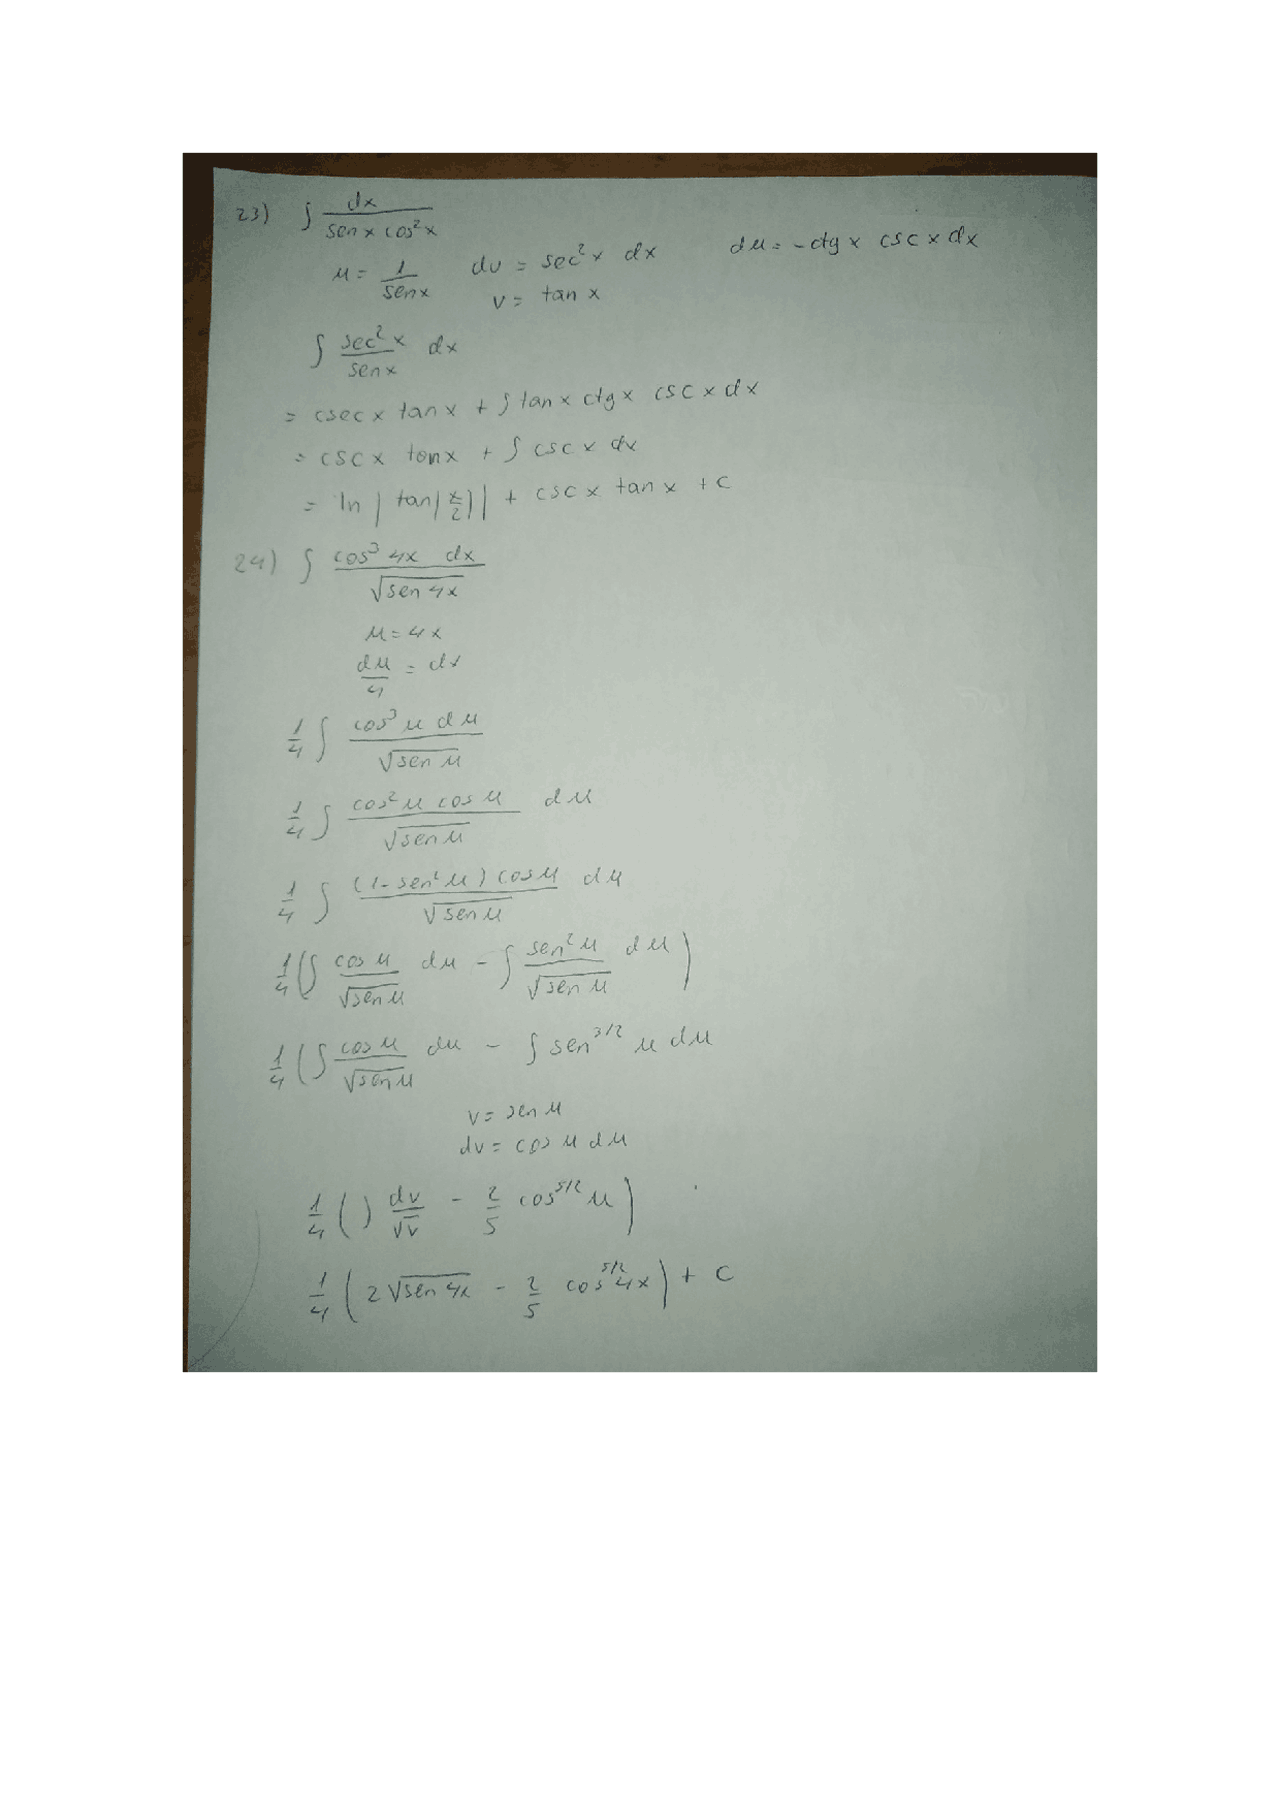 23) ∫ dx / (sen x cos² x)
u = 1 / sen x    dv = sec² x dx    du = - ctg x csc x dx
v = tan x
∫ sec² x / sen x dx
= csec x tan x + ∫ tan x ctg x csc x dx
= csc x tan x + ∫ csc x dx
= ln | tan(x/2) | + csc x tan x + c
24) ∫ cos³ 4x dx / √(sen 4x)
u = 4x
du / 4 = dx
1/4 ∫ cos³ u du / √(sen u)
1/4 ∫ cos² u cos u / √(sen u) du
1/4 ∫ (1 - sen² u) cos u / √(sen u) du
1/4 (∫ cos u / √(sen u) du - ∫ sen² u / √(sen u) du)
1/4 (∫ cos u / √(sen u) du - ∫ sen^3/2 u du
v = sen u
dv = cos u du
1/4 (∫ dv / √v - 2/5 cos^5/2 u)
1/4 (2 √(sen 4x) - 2/5 cos^5/2 4x) + c